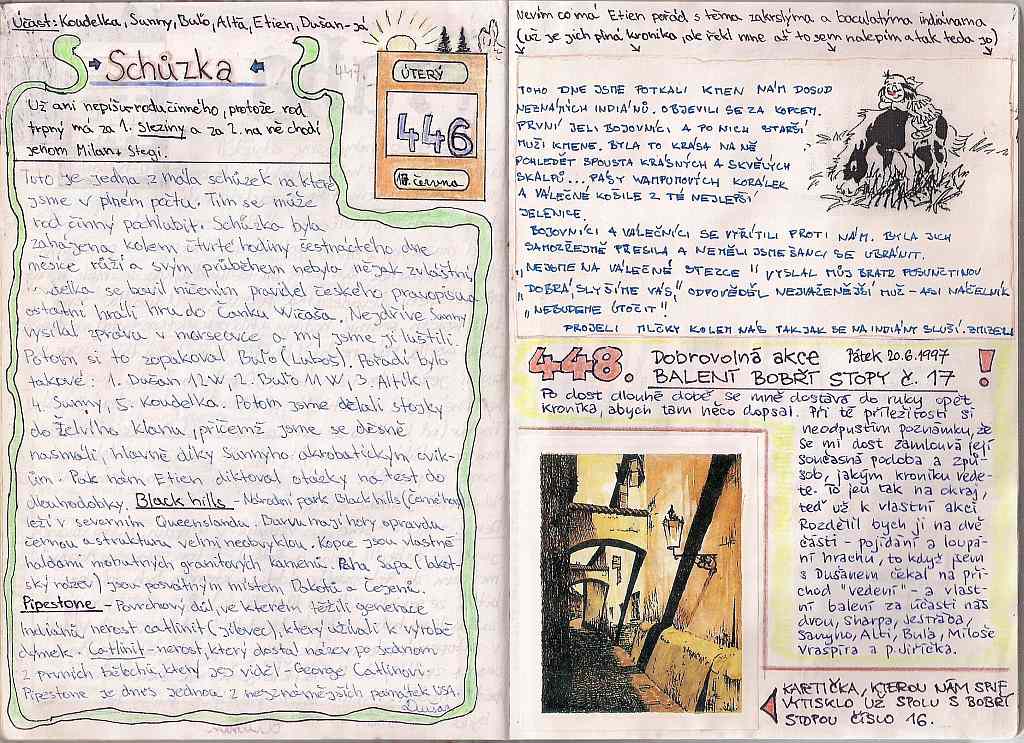 Účast: Koudelka, Sunny, Buřo, Alťa, Etien, Dušan-Já
Schůzka
447.
ÚTERÝ
446
17. června
Už ani nepíšu rodu činného, protože rod
trpný má za 1. Sleziny a za 2. na ně chodí
jenom Milan + Stegi.
Toto je jedna z mála schůzek na které
jsme v plném počtu. Tím se může
rod činný pochlubit. Schůzka byla
zahájena kolem čtvrté hodiny šestnáctého dne
měsíce růží a svým průběhem nebyla nějak zvláštní,
se bavil ničením pravidel českého pravopisu a
ostatní hráli hru do Čanku Wičaša. Nejdříve Sunny
vysílal zprávu v morseovce a my jsme ji luštili.
Potom si to zopakoval Buřo (Luboš). Pořadí bylo
takové: 1. Dušan 12W, 2. Buřo 11W, 3. Altík,
4. Sunny, 5. Koudelka. Potom jsme dělali stojky
do Želvího klanu, přičemž jsme se děsně
nasmáli, hlavně díky Sunnyho akrobatickým cvik-
ům. Pak nám Etien diktoval otázky na test do
dlouhodobky. Black hills - Národní park Black hills (černé hory)
leží v severním Queenslandu. Barvu mají hory opravdu
černou a strukturu velmi neobvyklou. Kopce jsou vlastně
haldami mohutných granitových kamenů. Paha Sapa (lakot-
ský název) jsou posvátným místem Dakotů a Čejenů.
Pipestone - Povrchový důl, ve kterém těžili generace
Indiánů nerost catlinit (jílovec), který užívali k výrobě
dýmek. Catlinit - nerost, který dostal název po jednom
z prvních bělochů, který jej viděl - George Catlinovi.
Pipestone je dnes jednou z nejznámějších památek USA.
Dušan
Nevím co má Etien pořád s těma zakrslýma a baculatýma indiánama
(už je jich plná kronika, ale řekl mne ať to sem nalepím a tak teda jo)
TOHO DNE JSME POTKALI KMEN NÁM DOSUD
NEZNÁMÝCH INDIÁNŮ. OBJEVILI SE ZA KOPCEM.
PRVNÍ JELI BOJOVNÍCI A PO NICH STARŠÍ
MUŽI KMENE. BYLA TO KRÁSA NA NĚ
POHLEDĚT SPOUSTA KRÁSNÝCH A SKVĚLÝCH
SKALPŮ... PÁSY WAMPUMOVÝCH KORÁLEK
A VÁLEČNÉ KOŠILE Z TÉ NEJLEPŠÍ
JELENICE.
BOJOVNÍCI A VÁLEČNÍCI SE VYŘÍTILI PROTI NÁM. BYLA JICH
SAMOZŘEJMĚ PŘESILA A NEMĚLI JSME ŠANCI SE UBRÁNIT.
„NEJSME NA VÁLEČNÉ STEZCE" VYSLAL MŮJ BRATR POSUNČTINOU
„DOBRÁ, SLYŠÍME VÁS," ODPOVĚDĚL NEJVÁŽENĚJŠÍ MUŽ - ASI NÁČELNÍK
„NEBUDEME ÚTOČIT"
PROJELI MLČKY KOLEM NÁS TAK JAK SE NA INDIÁNY SLUŠÍ. ZMIZELI
448. Dobrovolná akce Pátek 20.6.1997 !
BALENÍ BOBŘÍ STOPY Č. 17
Po dost dlouhé době, se mně dostává do ruky opět
kronika, abych tam něco dopsal. Při té příležitosti si
neodpustím poznámku, že
se mi dost zamlouvá její
současná podoba a způ-
sob, jakým kroniku vede-
te. To jen tak na okraj,
teď už k vlastní akci.
Rozdělil bych ji na dvě
části - pojídání a loupá-
ní hrachu, to když jsem
s Dušanem čekal na pří-
chod "vedení" - a vlast-
ní balení za účasti nás
dvou, Sharpa, Jestřába,
Sanyho, Alti, Bula, Miloše
Vraspíra a p. Jiříčka.
KARTIČKA, KTEROU NÁM SPJF
VYTISKLO UŽ SPOLU S BOBŘÍ
STOPOU ČÍSLO 16.